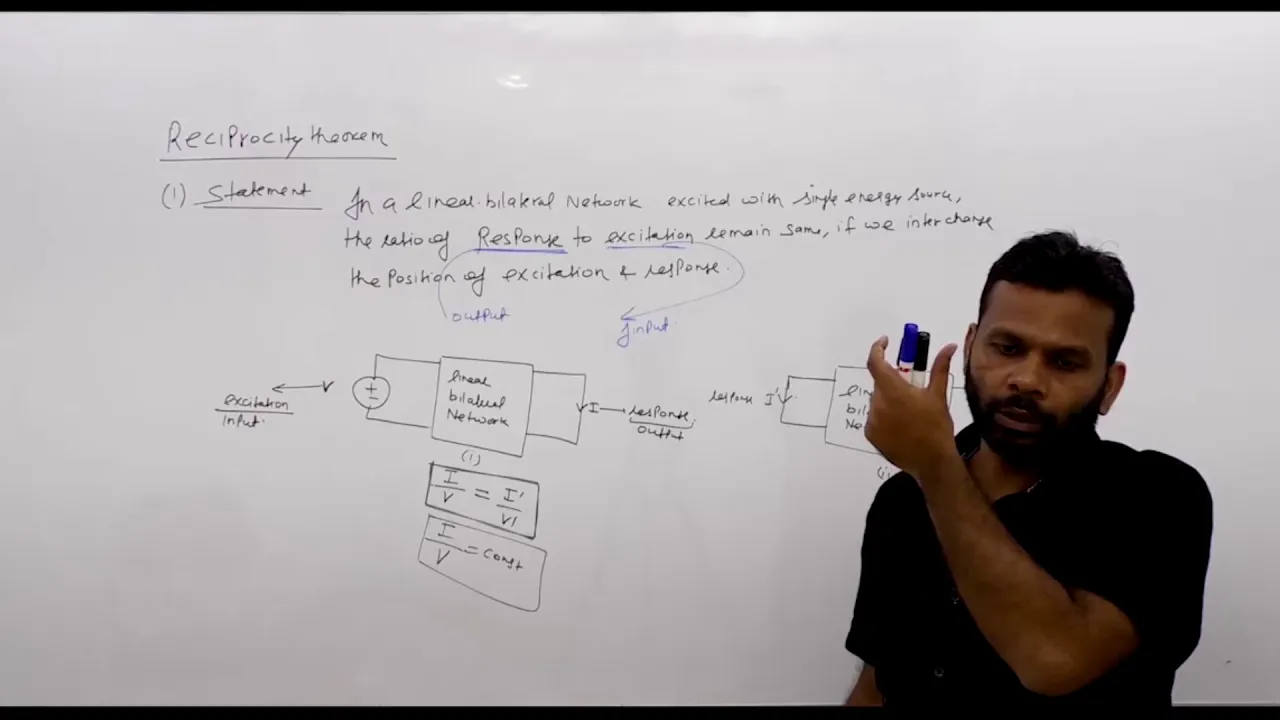 Reciprocity theorem
(1) Statement In a linear bilateral Network excited with single energy source,
the ratio of Response to excitation remain same, if we interchange
the Position of excitation & response.
output
Input.
V
excitation
Input.
+
-
linear
bilateral
Network
I
response.
output
(i)
response I'
I/V = I'/V'
I/V = const